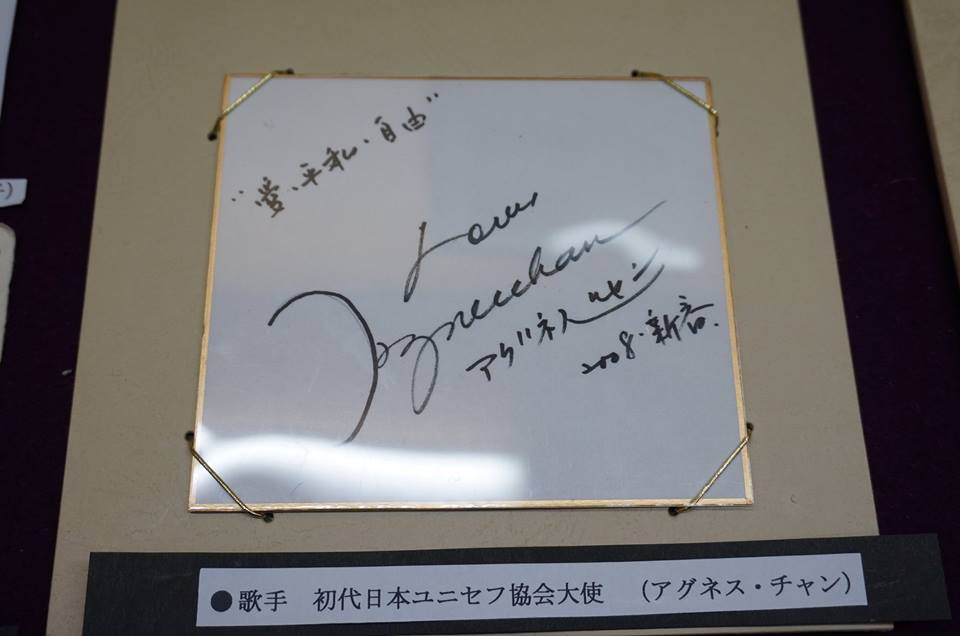 "愛・平和・自由"
Love,
Agnes Chan
アグネス・チャン
2008・新春.
●歌手 初代日本ユニセフ協会大使 (アグネス・チャン)